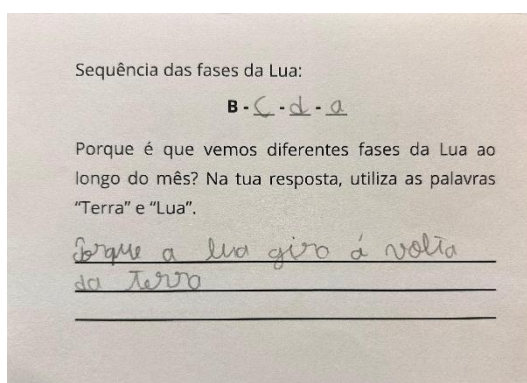 Sequência das fases da Lua:
B - C - d - a
Porque é que vemos diferentes fases da Lua ao
longo do mês? Na tua resposta, utiliza as palavras
“Terra” e “Lua”.
Porque a lua gira á volta
da Terra